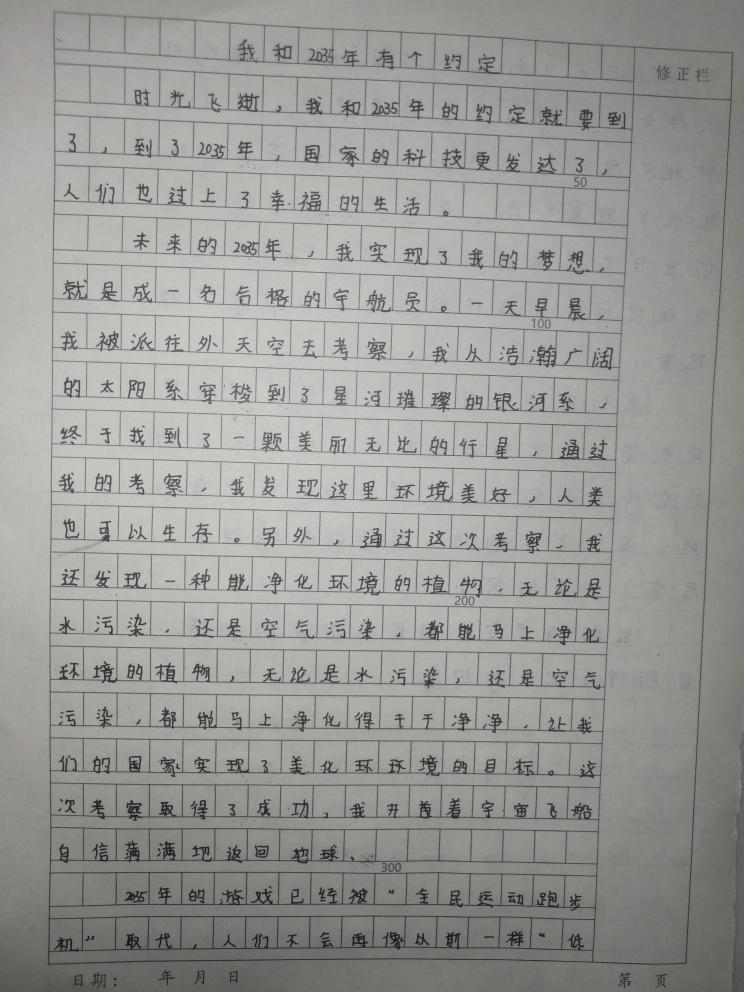 我和2035年有个约定
修正栏
时光飞逝，我和2035年的约定就要到
了，到了2035年，国家的科技更发达了，
50
人们也过上了幸福的生活。
未来的2035年，我实现了我的梦想，
就是成一名合格的宇航员。一天早晨，
100
我被派往外天空去考察，我从浩瀚广阔
的太阳系穿梭到了星河璀璨的银河系，
终于我到了一颗美丽无比的行星，通过
我的考察，我发现这里环境美好，人类
也可以生存。另外，通过这次考察、我
还发现一种能净化环境的植物，无论是
200
水污染，还是空气污染，都能马上净化
环境的植物，无论是水污染，还是空气
污染，都能马上净化得干干净净，让我
们的国家实现了美化环环境的目标。这
次考察取得了成功，我开着宇宙飞船
自信满满地返回地球、
300
2035年的游戏已经被“全民运动跑步
机”取代，人们不会再像以前一样“低
日期： 年 月 日
第 页